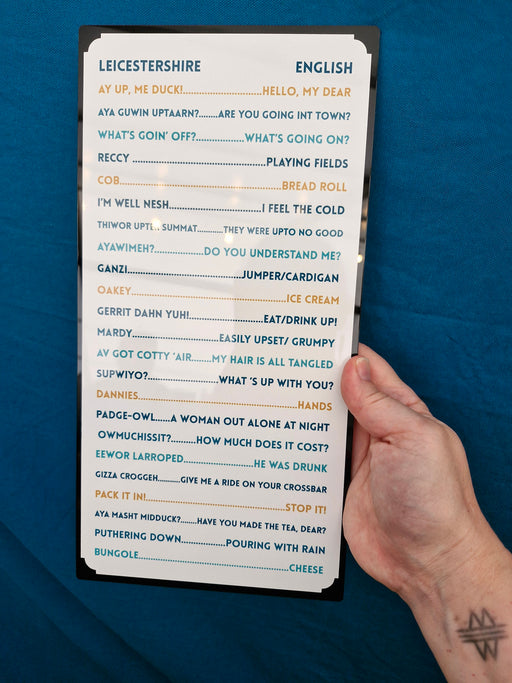 LEICESTERSHIRE ENGLISH
AY UP, ME DUCK!............................HELLO, MY DEAR
AYA GUWIN UPTAARN?.......ARE YOU GOING INT TOWN?
WHAT'S GOIN' OFF?..................WHAT'S GOING ON?
RECCY ................................................PLAYING FIELDS
COB..........................................................BREAD ROLL
I'M WELL NESH.................................I FEEL THE COLD
THIWOR UPTER SUMMAT..........THEY WERE UPTO NO GOOD
AYAWIMEH?..................DO YOU UNDERSTAND ME?
GANZI.........................................JUMPER/CARDIGAN
OAKEY........................................................ICE CREAM
GERRIT DAHN YUH!...........................EAT/DRINK UP!
MARDY...............................EASILY UPSET/ GRUMPY
AV GOT COTTY 'AIR.......MY HAIR IS ALL TANGLED
SUPWIYO?.........................WHAT 'S UP WITH YOU?
DANNIES..........................................................HANDS
PADGE-OWL.....A WOMAN OUT ALONE AT NIGHT
OWMUCHISSIT?.........HOW MUCH DOES IT COST?
EEWOR LARROPED.........................HE WAS DRUNK
GIZZA CROGGEH.........GIVE ME A RIDE ON YOUR CROSSBAR
PACK IT IN!..................................................STOP IT!
AYA MASHT MIDDUCK?.......HAVE YOU MADE THE TEA, DEAR?
PUTHERING DOWN................POURING WITH RAIN
BUNGOLE......................................................CHEESE